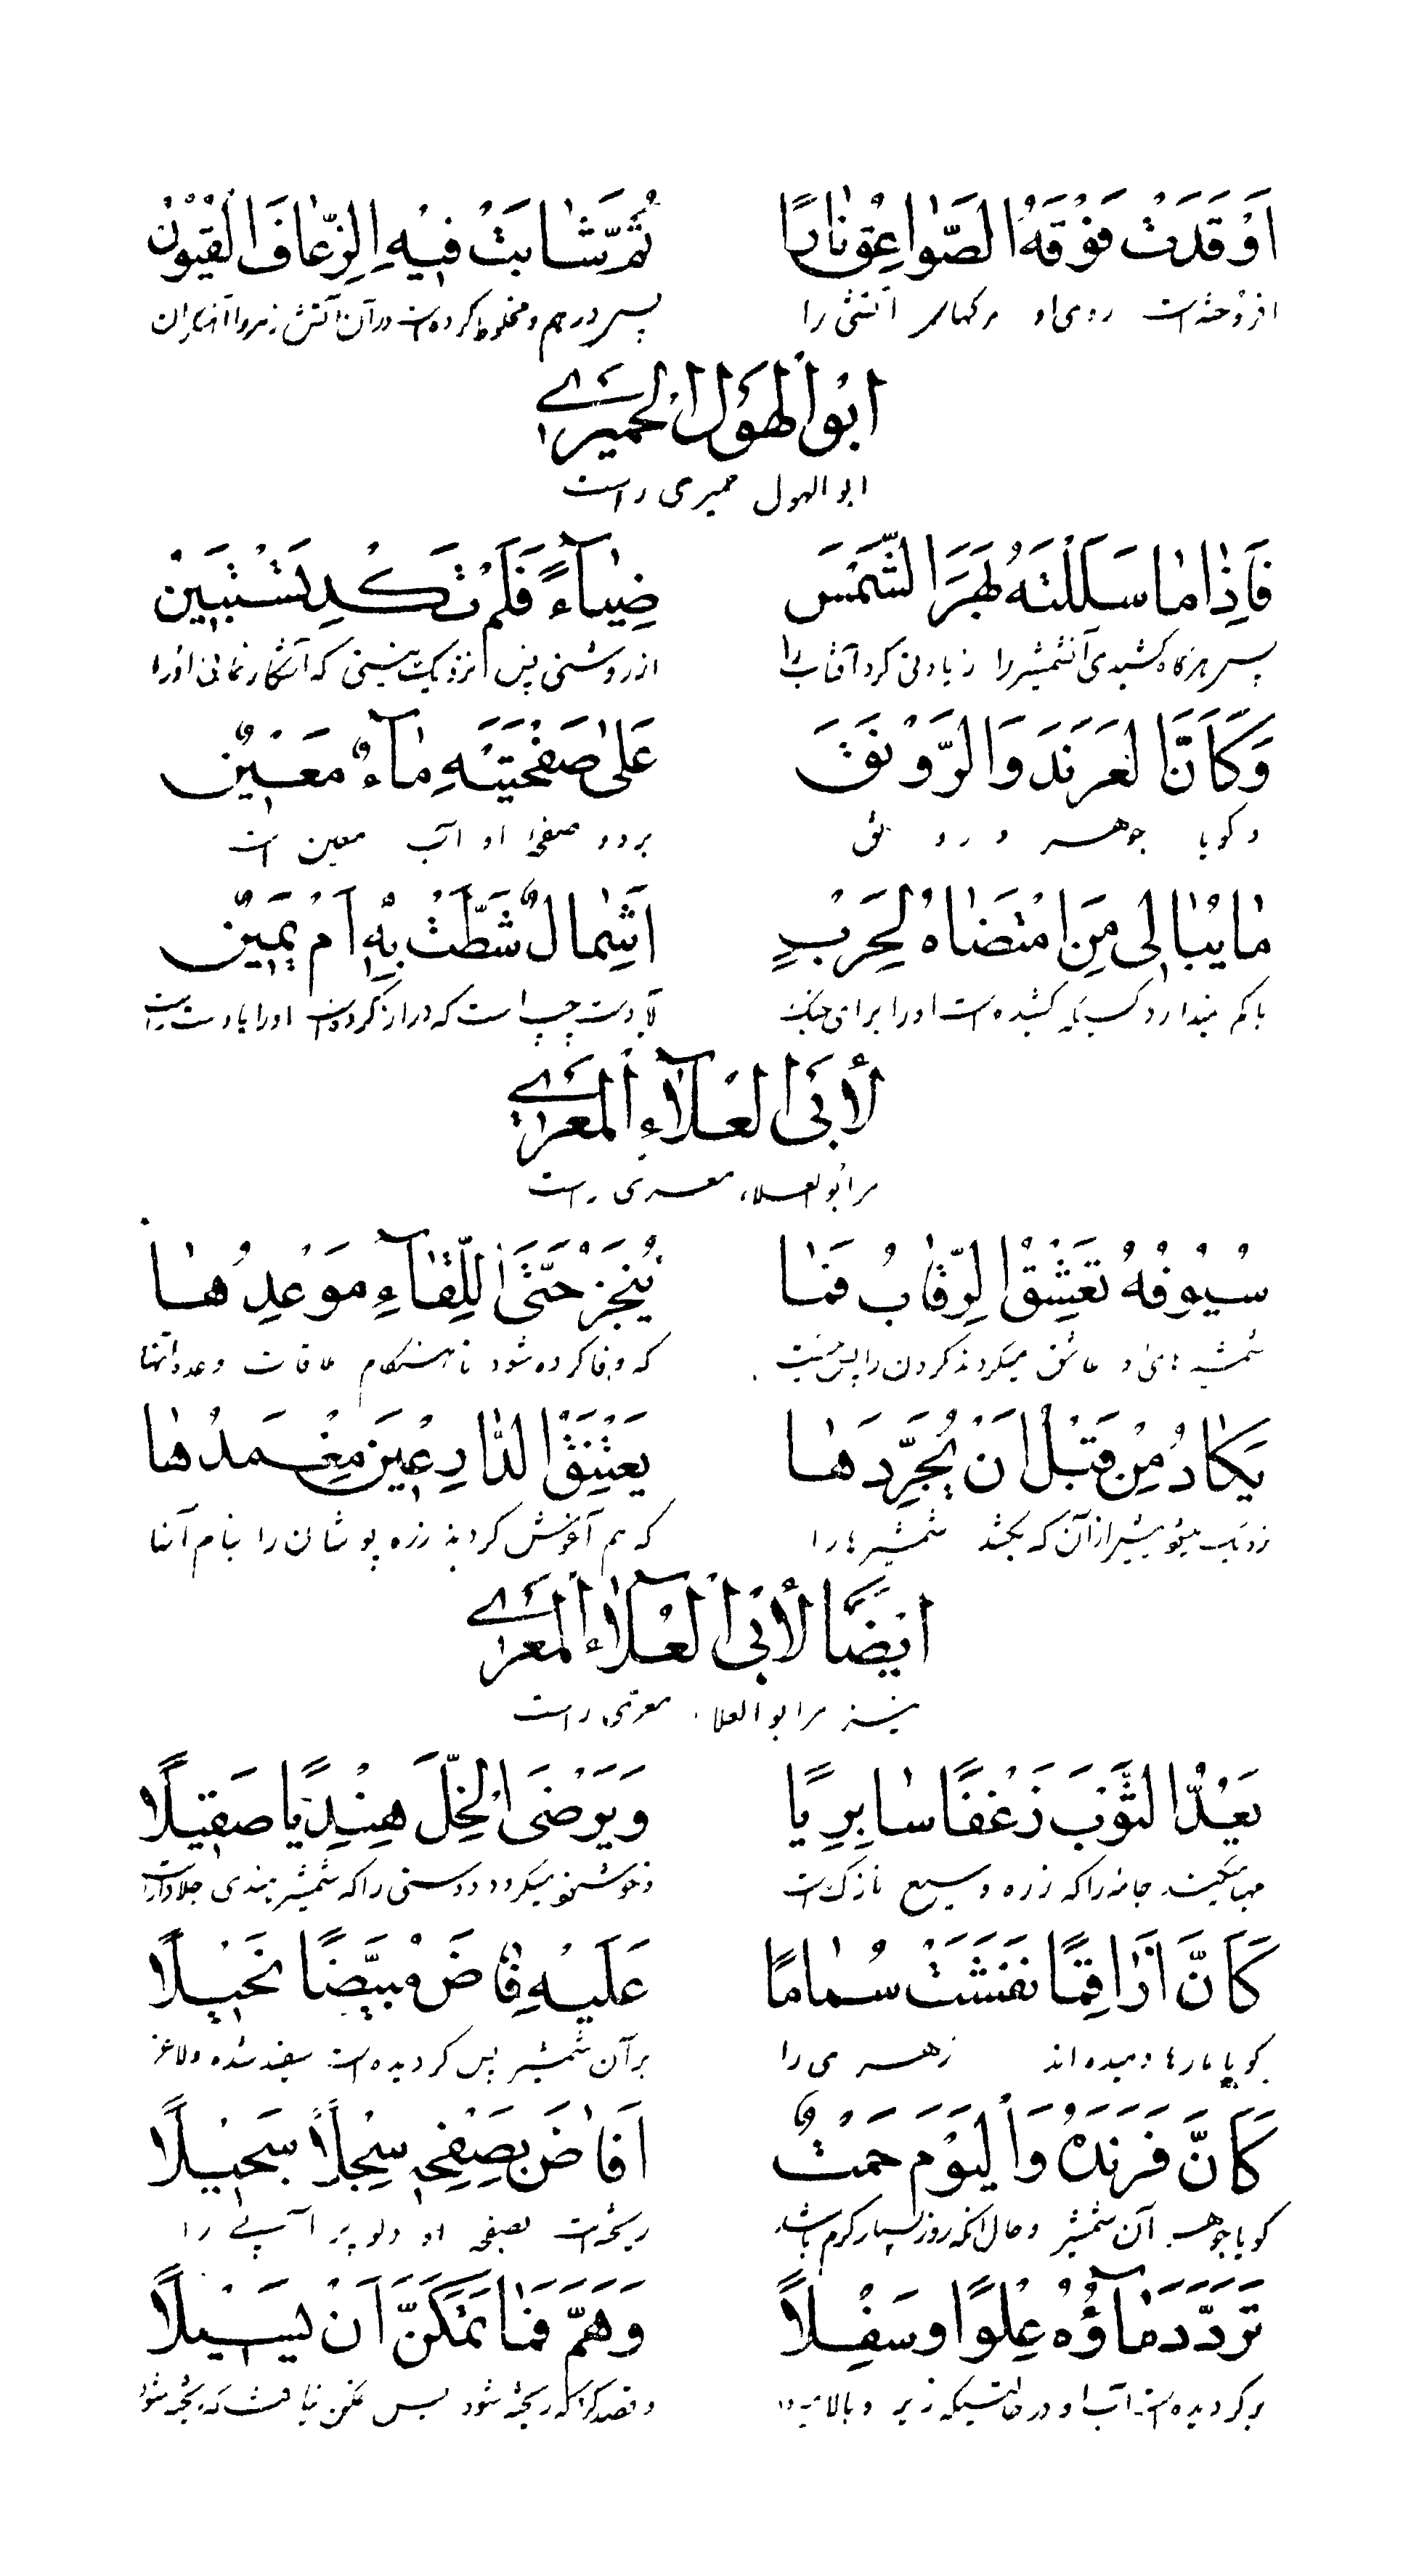 اَوْقَدَتْ فَوْقَهُ الصَّوٰاعِقُ نٰارًا ثُمَّ شٰابَتْ فيٖهِ الزُّعٰافَ الْقُيُوْنُ
افروخته است روی او برکها آتشی را پس درهم و مخلوط کرده است در آن آتش زهر را آهنکران
اَبُو الْهَوْلِ الْحِمْيَرِيّ
ابو الهول حمیری راست
فَاِذٰا مٰا سَلَلْتَهُ بَهَرَ الشَّمْسَ ضِيٰآءً فَلَمْ تَكَدْ تَسْتَبِيْنُ
پس هرکاه کشیدی آنشمشیر را زیادتی کرد آفتاب را از روشنی پس نزدیک نیستی که آشکار نمائی او را
وَكَاَنَّ الْفَرَنْدَ وَالرَّوْنَقَ عَلٰى صَفْحَتَيْهِ مٰآءٌ مَعيٖنٌ
و کویا جوهر و رونق بر دو صفحهٔ او آب معین است
مٰا يُبٰالى مَنِ امْتَضٰاهُ لِحَرْبٍ اَشِمٰالٌ شَطَّتْ بِهٖ اَمْ يَميٖنٌ
باکی ندارد کسیکه کشیده است او را برای جنک آیا دست چپ است که دراز کرده است او را یا دست راست
لِأَبِى الْعَلٰآءِ الْمَعَرّىٖ
مر ابو العلاء معری راست
سُيُوْفُهُ تَعْشَقُ الرِّقٰابُ فَمٰا يُنْجَزُ حَتّٰى اللِّقٰآءِ مَوْعِدُهٰا
شمشیرهای او عاشق میکردند کردن را پس نیست که وفا کرده شود تا هنکام ملاقات وعده آنها
يَكٰادُ مِنْ قَبْلِ اَنْ يُجَرِّدَهٰا يَعْتَنِقُ الدّٰارِعيٖنَ مِغْمَدُهٰا
نزدیک میشود پیش از آن که بکشد شمشیرها را که هم آغوش کردد زره پوشان را نیام آنها
اَيْضًا لِأَبِى الْعَلٰاءِ الْمَعَرّىٖ
نیز مر ابو العلاء معری راست
يَعُدُّ الثَّوْبَ زَغْفًا سٰابِرِيًّا وَيَرْضَى الْخِلَّ هِنْدِيًّا صَقيٖلًا
مهیا میکند جامه را که زره وسیع نازک است و خوشنود میکردد دوستی را که شمشیر هندی جلادار است
كَاَنَّ اَرٰاقِمًا نَفَثَتْ سُمٰامًا عَلَيْهِ فٰاضَ مُبْيَضًّا نَحيٖلًا
کویا مارها دمیده اند زهری را بر آن شمشیر پس کردیده است سفید شده و لاغر
كَاَنَّ فَرَنْدَهُ وَالْيَوْمُ حَمْتٌ اَفٰاضَ بِصَفْحِهٖ سِجْلًا سَجيٖلًا
کویا جوهر آن شمشیر و حال آنکه روز بسیار کرم باشد ریخته است بصفحه او دلو پر آبی را
تَرَدَّدَ مٰآؤُهُ عُلْوًا وَسُفْلًا وَهَمَّ فَمٰا تَمَكَّنَ اَنْ يَسيٖلًا
بر کردیده است آب او در حالتیکه زیر و بالا میرود و قصد کرد که ریخته شود پس ممکن نیافت که ریخته شود